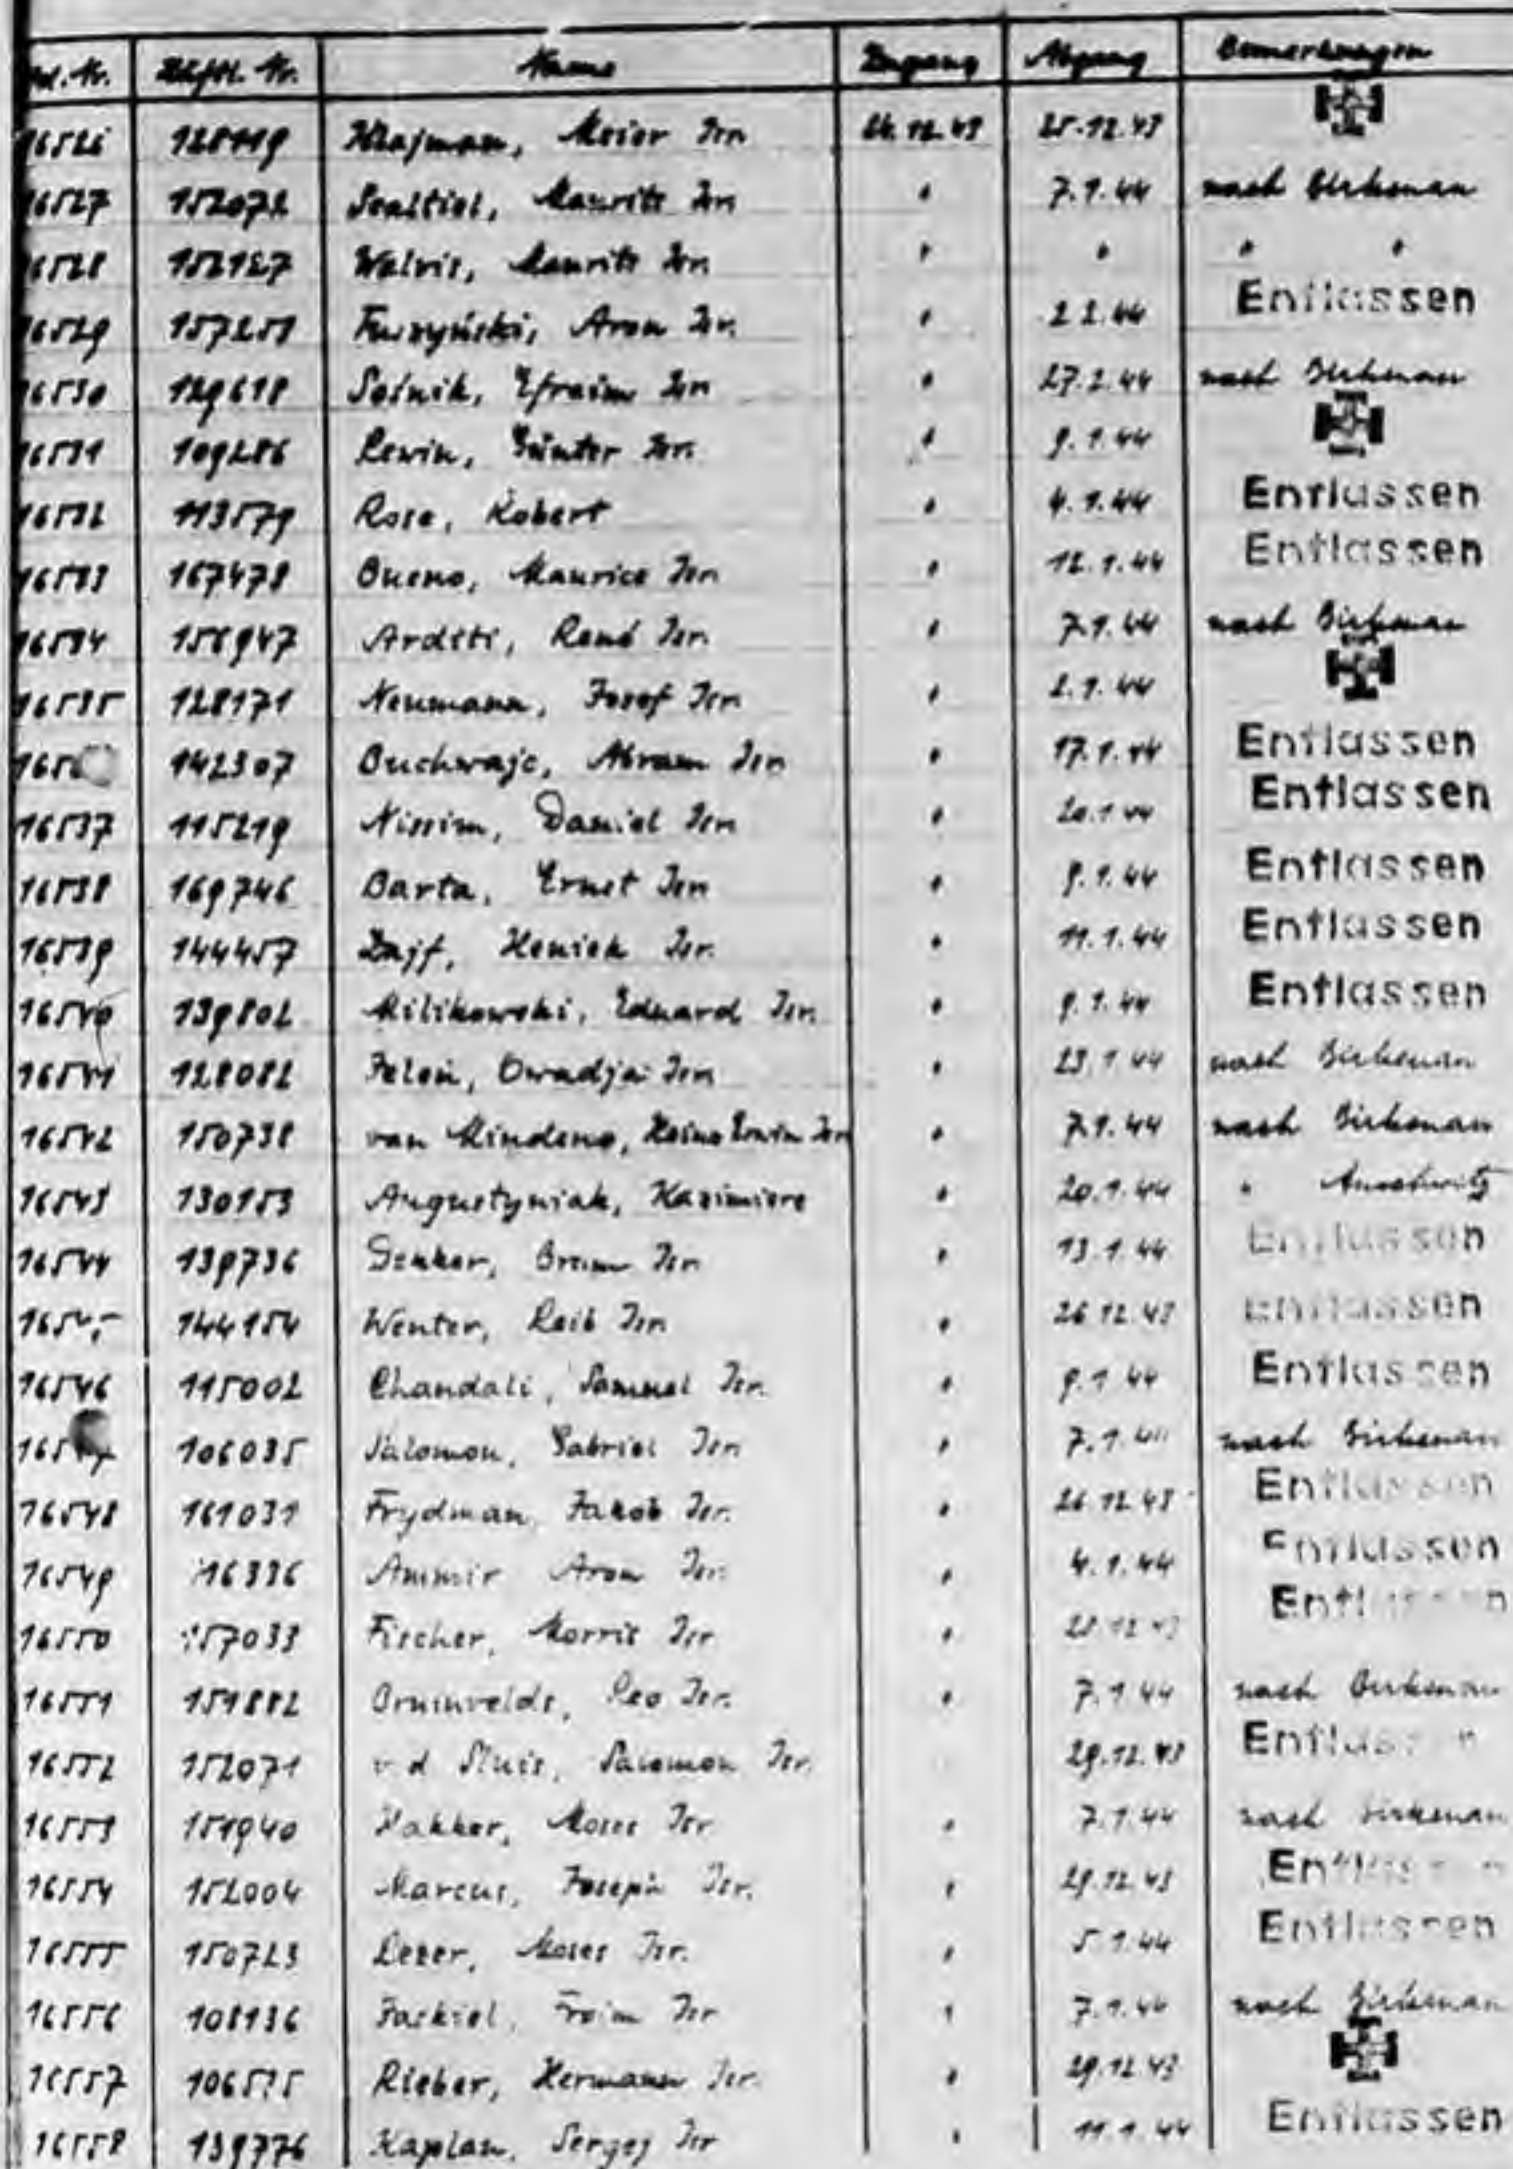 Lfd. Nr. Häftl. Nr. Name Zugang Abgang Bemerkungen
16526 128119 Klajman, Meier Isr. 24.12.43 25.12.43
16527 152072 Sealtiel, Maurits Isr. " 7.1.44 nach Birkenau
16528 152127 Walvis, Maurits Isr. " " " "
16529 157251 Aron Isr. " 2.2.44 Entlassen
16530 129618 Sośnik, Efraim Isr. " 27.2.44 nach Birkenau
16531 109286 Lewin, Günter Isr. " 9.1.44
16532 113579 Rose, Robert " 4.1.44 Entlassen
16533 167478 Bueno, Maurice Isr. " 12.1.44 Entlassen
16534 156947 Arditti, René Isr. " 7.1.44 nach Birkenau
16535 128171 Neumann, Josef Isr. " 2.1.44
142307 Buchwajc, Abram Isr. " 17.1.44 Entlassen
16537 115219 Nissim, Daniel Isr. " 20.1.44 Entlassen
16538 169746 Barta, Ernst Isr. " 9.1.44 Entlassen
16539 144457 Zajf, Heniek Isr. " 11.1.44 Entlassen
16540 139802 Milikowski, Eduard Isr. " 9.1.44 Entlassen
16541 128082 Isr. " 23.1.44 nach Birkenau
16542 150738 van Mindeno, Heinz Erwin Isr. " 7.1.44 nach Birkenau
16543 130153 Augustyniak, Kazimierz " 20.1.44 " Auschwitz
16544 139736 Isr. " 13.1.44 Entlassen
144154 Wenter, Leib Isr. " 26.12.43 Entlassen
16546 115002 Chandali, Samuel Isr. " 9.1.44 Entlassen
106035 Salomon, Gabriel Isr. " 7.1.44 nach Birkenau
16548 161031 Frydman, Jakob Isr. " 26.12.43 Entlassen
16549 116336 Ammir Aron Isr. " 4.1.44 Entlassen
16550 157033 Fischer, Morris Isr. " 28.12.43 Entlassen
16551 151882 Bruinvelds, Leo Isr. " 7.1.44 nach Birkenau
16552 152071 v. d. Sluis, Salomon Isr. 29.12.43 Entlassen
16553 151940 Hakker, Moses Isr. " 7.1.44 nach Birkenau
16554 152004 Marcus, Joseph Isr. " 29.12.43 Entlassen
16555 150723 Lezer, Moses Isr. " 5.1.44 Entlassen
16556 108136 Froim Isr. " 7.1.44 nach Birkenau
16557 Rieber, Hermann Isr. " 29.12.43
16558 139776 Kaplan, Sergej Isr. " 11.1.44 Entlassen